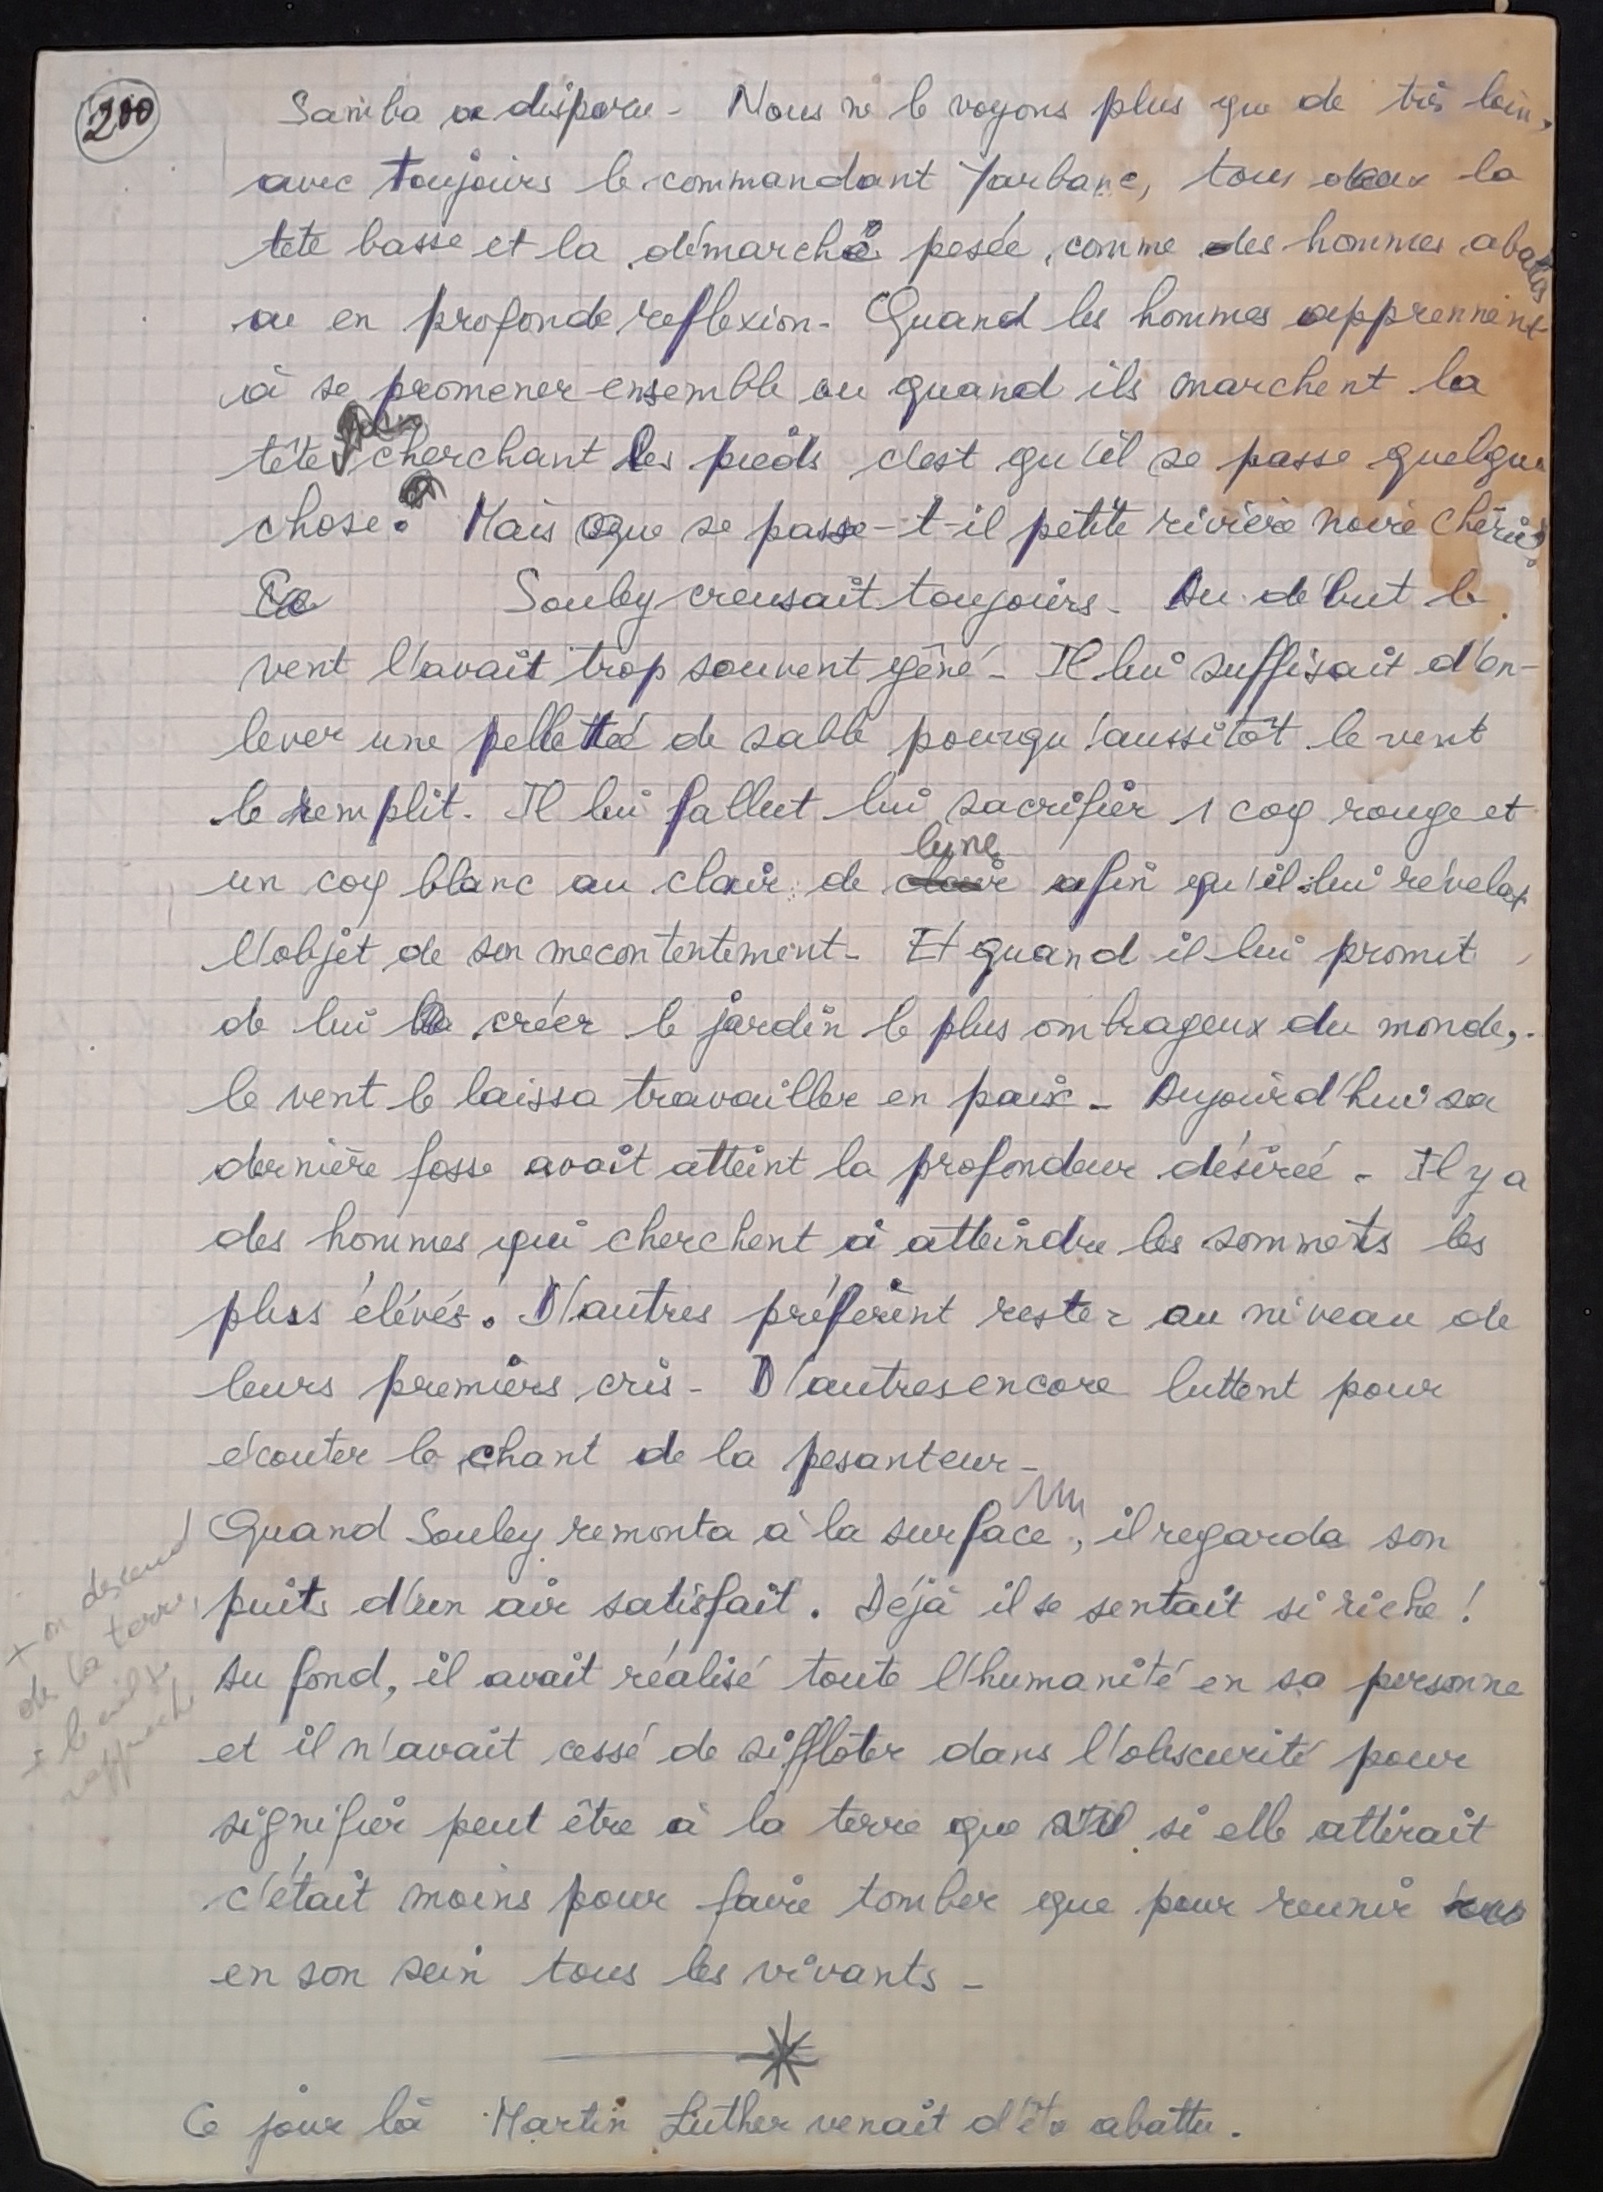 200
Samba a disparu - Nous ne le voyons plus que de très loin,
avec toujours le commandant Yarbanc, tous deux la
tête basse et la démarche pesée, comme des hommes abattus
ou en profonde reflexion - Quand les hommes apprennent
à se promener ensemble ou quand ils marchent la
tête cherchant les pieds c'est qu'il se passe quelque
chose. Mais que se passe-t-il petite rivière noire chérie?
Souley creusait toujours - Au début le
vent l'avait trop souvent gêné - Il lui suffisait d'en-
lever une pelletée de sable pourqu'aussitôt le vent
le remplit. Il lui fallut lui sacrifier 1 coq rouge et
lune
un coq blanc au clair de clair afin qu'il lui révelat
l'objet de son mecontentement - Et quand il lui promit
de lui créer le jardin le plus ombrageux du monde,
le vent le laissa travailler en paix - Aujourd'hui sa
dernière fosse avait atteint la profondeur désirée - Il y a
des hommes qui cherchent à atteindre les sommets les
plus élévés. D'autres préfèrent rester au niveau de
leurs premiers cris - D'autres encore luttent pour
écouter le chant de la pesanteur -
Quand Souley remonta à la surface, il regarda son
puits d'un air satisfait. Déjà il se sentait si riche !
Au fond, il avait réalisé toute l'humanité en sa personne
et il n'avait cessé de siffloter dans l'obscurité pour
signifier peut être à la terre que si elle attirait
c'était moins pour faire tomber que pour reunir
en son sein tous les vivants -
+ on descend
de la terre,
+ le
rapproche
Ce jour là Martin Luther venait d'être abattu.